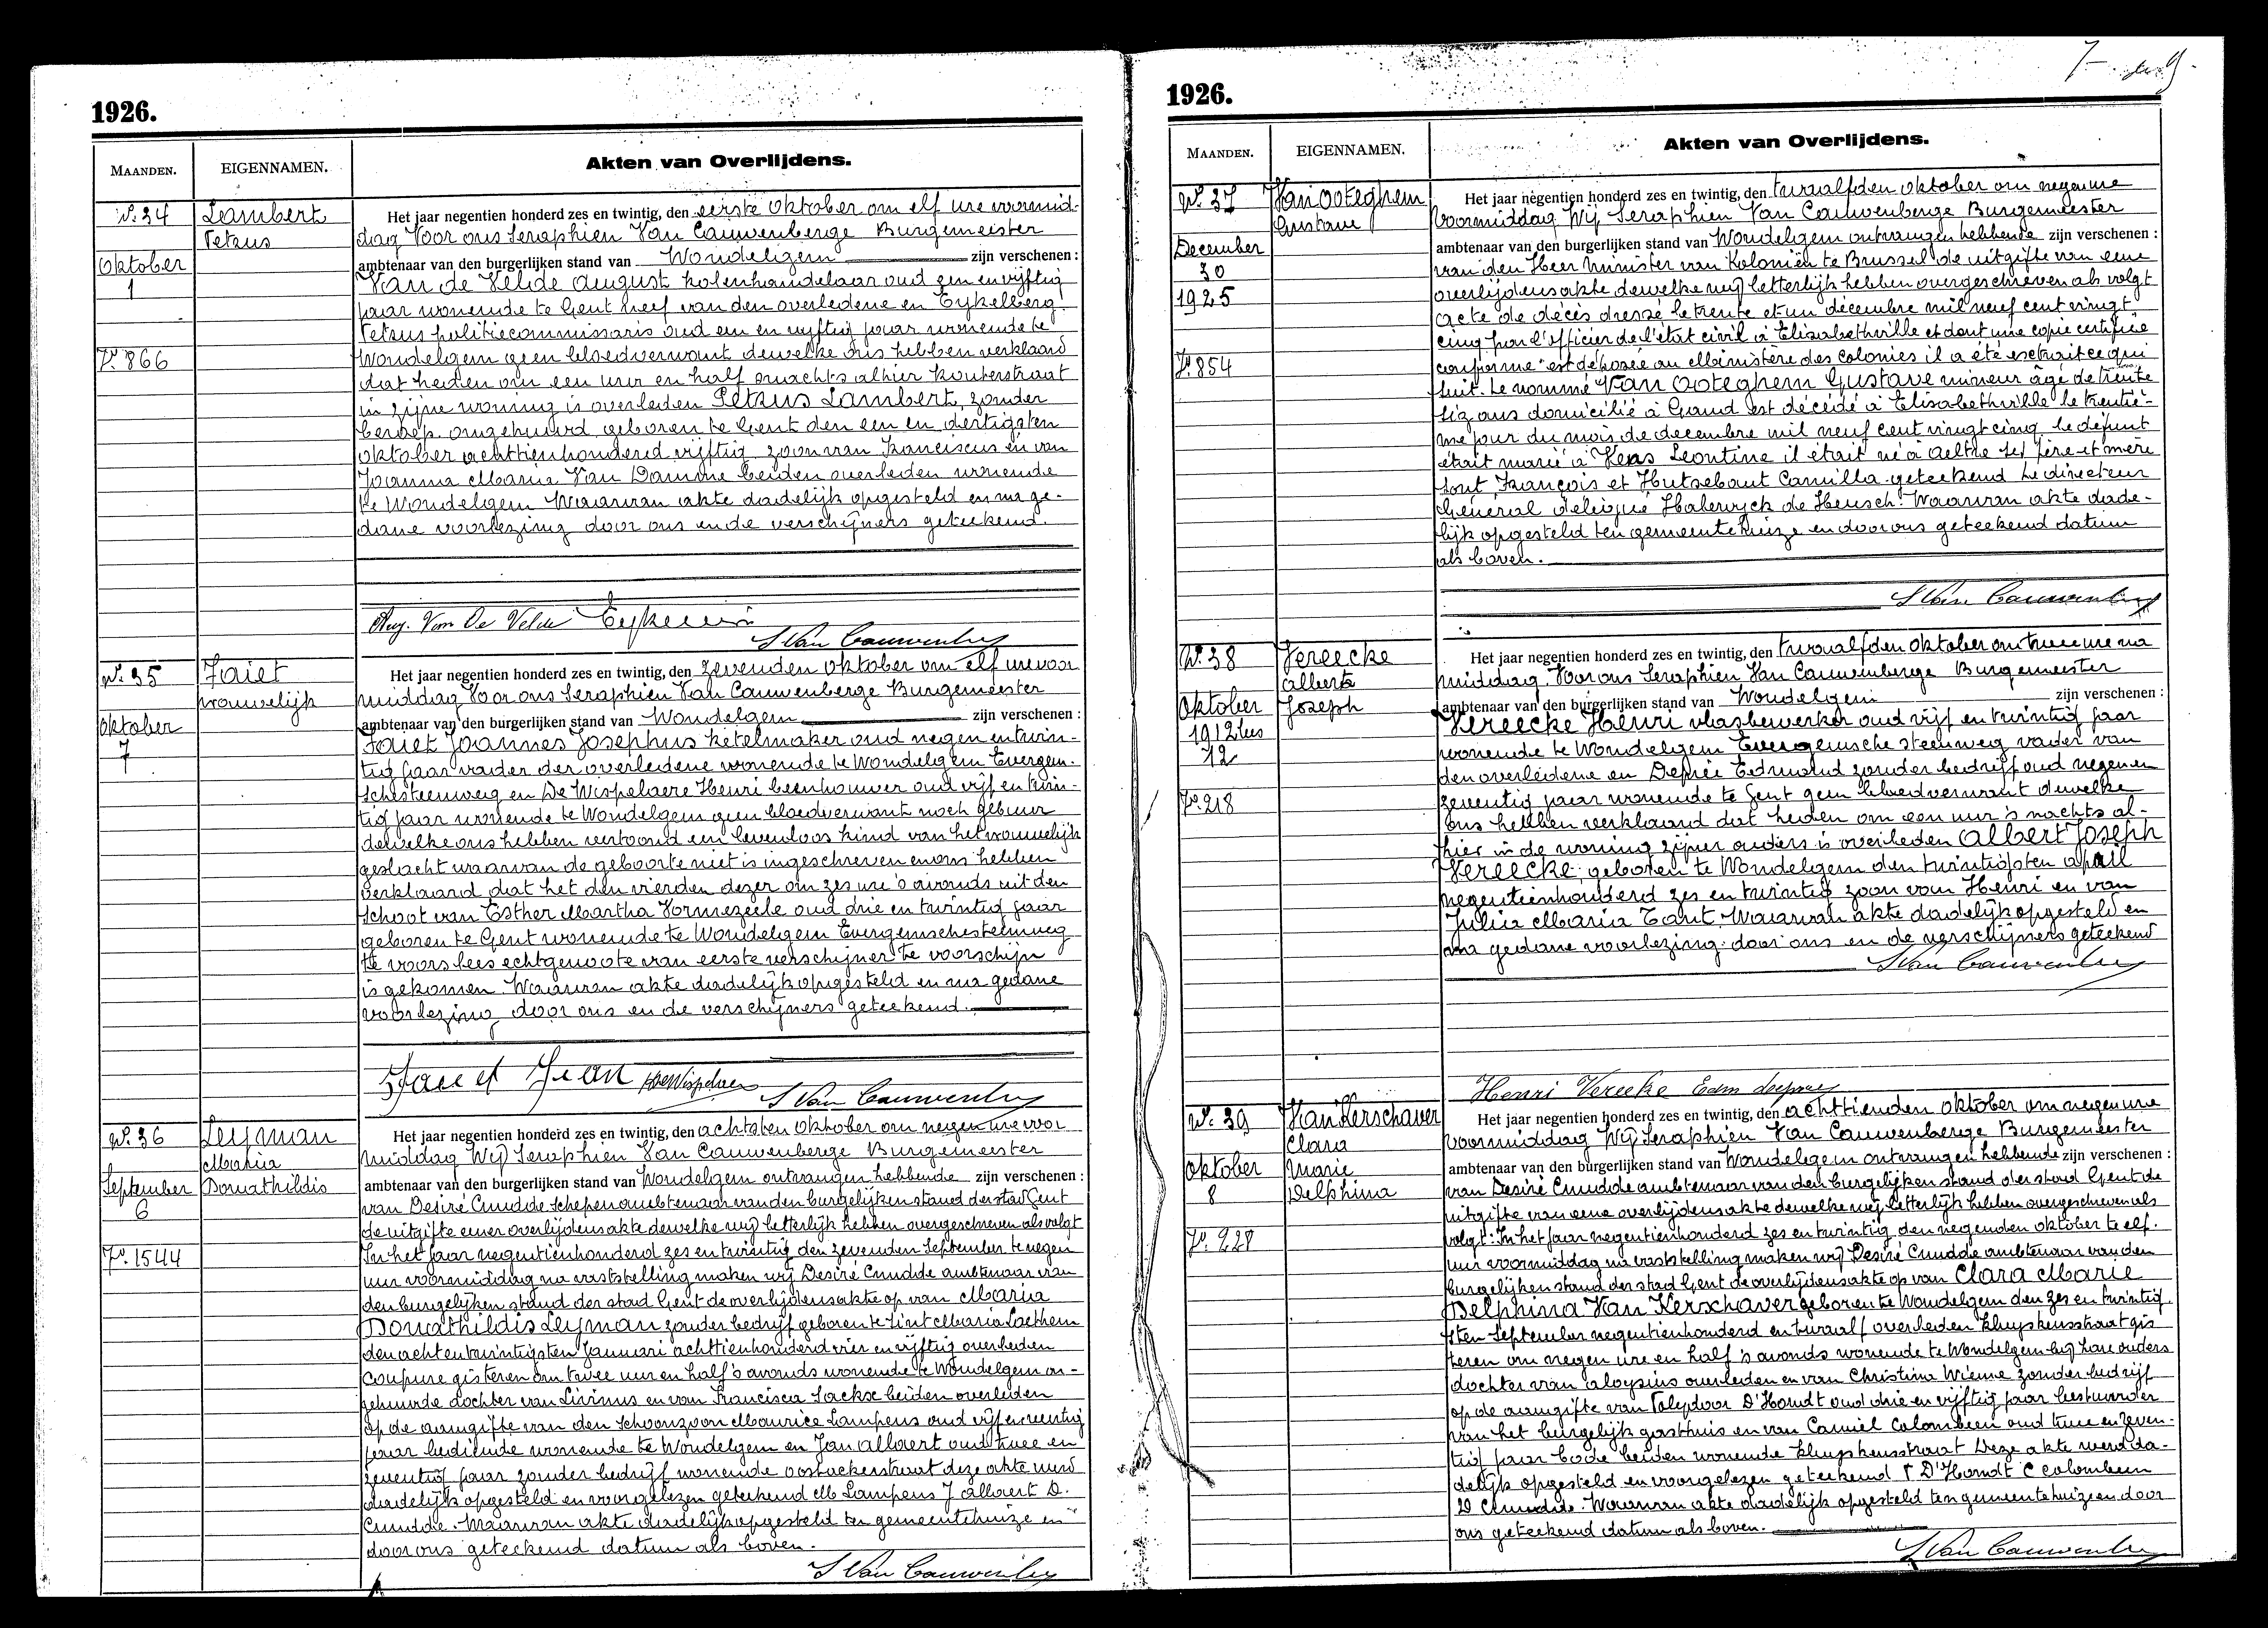 1926.
MAANDEN.
EIGENNAMEN.
Akten van Overlijdens.
N.º 34
Lambert
Petrus
Oktober
1
F.º 866
Het jaar negentien honderd zes en twintig, den eerste Oktober om elf ure voormid-
dag Voor ons Seraphien Van Cauwenberge Burgemeester
ambtenaar van den burgerlijken stand van Wondelgem zijn verschenen :
Van de Velde August kolenhandelaar oud een en vijftig
jaar wonende te Gent neef van den overledene en Eykelberg
Petrus politiecommissaris oud een en vyftig jaar wonende te
Wondelgem geen bloedverwant dewelke ons hebben verklaard
dat heden om een uur en half snachts alhier Kouterstraat
in zijne woning is overleden Petrus Lambert, zonder
beroep ongehuwd geboren te Gent den een en dertigsten
oktober achttienhonderd vijftig zoon van Franciscus en van
Joanna Maria Van Damme beiden overleden wonende
te Wondelgem Waarvan akte dadelijk opgesteld en na ge-
dane voorlezing door ons en de verschijners geteekend.
Aug. Van De Velde
S Van Cauwenberge
N.º 35
Faiet
vrouwelijk
Oktober
7
Het jaar negentien honderd zes en twintig, den zevenden oktober om elf ure voor
middag Voor ons Seraphien Van Cauwenberge Burgemeester
ambtenaar van den burgerlijken stand van Wondelgem zijn verschenen :
Faiet Joannes Josephus ketelmaker oud negen en twin-
tig jaar vader der overledene wonende te Wondelgem Evergem-
schesteenweg en De Wispelaere Henri beenhouwer oud vijf en twin-
tig jaar wonende te Wondelgem geen bloedverwant noch gebuur
dewelke ons hebben vertoond een levenloos kind van het vrouwelijk
geslacht waarvan de geboorte niet is ingeschreven en ons hebben
verklaard dat het den vierden dezer om zes ure 's avonds uit den
schoot van Esther Martha Vormezeele oud drie en twintig jaar
geboren te Gent wonende te Wondelgem Evergemschesteenweg
te voorslees echtgenoote van eerste verschijner te voorschijn
is gekomen Waarvan akte dadelijk opgesteld en na gedane
voorlezing door ons en de verschijners geteekend.
Faiet Jean HDeWispelaere
S Van Cauwenberge
N.º 36
Leyman
Maria
Donathildis
September
6
F.º 1544
Het jaar negentien honderd zes en twintig, den achtsten oktober om negen ure voor
middag Wij Seraphien Van Cauwenberge Burgemeester
ambtenaar van den burgerlijken stand van Wondelgem ontvangen hebbende zijn verschenen :
van Desiré Cnudde schepen ambtenaar van den burgelijken stand der stad Gent
de uitgifte eener overlijdensakte dewelke wij letterlijk hebben overgeschreven als volgt
In het jaar negentienhonderd zes en twintig den zevenden September te negen
uur voormiddag na vaststelling maken wij Desiré Cnudde ambtenaar van
den burgelijken stand der stad Gent de overlijdensakte op van Maria
Donathildis Leyman zonder bedrijf geboren te Sint Maria Laethem
den acht en twintigsten Januari achttienhonderd vier en vijftig overleden
Coupure gisteren om twee uur en half 's avonds wonende te Wondelgem on-
gehuwde dochter van Livinus en van Francisca Sackx beiden overleden
op de aangifte van den schoonzoon Maurice Lampens oud vijf en veertig
jaar bediende wonende te Wondelgem en Jan Allaert oud twee en
zeventig jaar zonder bedrijf wonende oostackerstraat deze akte werd
dadelijk opgesteld en voorgelezen geteekend M Lampens J Allaert D.
Cnudde. Waarvan akte dadelijk opgesteld ten gemeentehuize en
door ons geteekend datum als boven.
S Van Cauwenberge
1926.
MAANDEN.
EIGENNAMEN.
Akten van Overlijdens.
N.º 37
Van Ooteghem
Gustave
December
30
1925
F.º 854
Het jaar negentien honderd zes en twintig, den twaalfden oktober om negen ure
Voormiddag Wij Seraphien Van Cauwenberge Burgemeester
ambtenaar van den burgerlijken stand van Wondelgem ontvangen hebbende zijn verschenen :
van den Heer Minister van Koloniën te Brussel de uitgifte van eene
overlijdensakte dewelke wij letterlijk hebben overgeschreven als volgt
Acte de décès dressé le trente et un décembre mil neuf cent vingt
cinq par l'officier de l'état civil à Elisabethville et dont une copie certifiée
conforme est déposée au Ministère des Colonies il a été extrait ce qui
suit. Le nommé Van Ooteghem Gustave mineur âgé de trente
six ans domicilié à Gand est décédé à Elisabethville le trentiè-
me jour du mois de decembre mil neuf cent vingt cinq le défunt
était marié à Keas Leontine il était né à Aeltre ses père et mère
sont François et Hutsebaut Camilla geteekend Le directeur
Général délégué Halewyck de Heusch. Waarvan akte dade-
lijk opgesteld ten gemeentehuize en door ons geteekend datum
als boven.
S Van Cauwenberge
N.º 38
Vereecke
Albert
Joseph
Oktober
12
F.º 218
Het jaar negentien honderd zes en twintig, den twaalfden oktober om twee ure na
middag. Voor ons Seraphien Van Cauwenberge Burgemeester
ambtenaar van den burgerlijken stand van Wondelgem zijn verschenen :
Vereecke Henri vlasbewerker oud vijf en twintig jaar
wonende te Wondelgem Evergemsche steenweg vader van
den overledene en Deprée Edmond zonder bedrijf oud negen en
zeventig jaar wonende te Gent geen bloedverwant dewelke
ons hebben verklaard dat heden om een uur 's nachts al-
hier in de woning zijner ouders is overleden Albert Joseph
Vereecke, geboren te Wondelgem den twintigsten april
negentienhonderd zes en twintig zoon van Henri en van
Julia Maria Tant. Waarvan akte dadelijk opgesteld en
na gedane voorlezing door ons en de verschijners geteekend
S Van Cauwenberge
Henri Vereecke Edm
N.º 39
Van Kerschaver
Clara
Marie
Delphina
Oktober
8
F.º 228
Het jaar negentien honderd zes en twintig, den achttienden oktober om negen ure
voormiddag Wij Seraphien Van Cauwenberge Burgemeester
ambtenaar van den burgerlijken stand van Wondelgem ontvangen hebbende zijn verschenen :
van Desiré Cnudde ambtenaar van den burgelijken stand der stad Gent de
uitgifte van eene overlijdensakte dewelke wij letterlijk hebben overgeschreven als
volgt : In het jaar negentienhonderd zes en twintig den negenden oktober te elf
uur voormiddag na vaststelling maken wij Desiré Cnudde ambtenaar van den
burgelijken stand der stad Gent de overlijdensakte op van Clara Marie
Delphina Van Kerschaver geboren te Wondelgem den zes en twintig
sten September negentienhonderd en twaalf overleden Kluyskensstraat gis
teren om negen ure en half 's avonds wonende te Wondelgem bij hare ouders
dochter van Aloysius overleden en van Christina Wieme zonder bedrijf
op de aangifte van D'Hondt oud drie en vijftig jaar bestuurder
van het burgelijk gasthuis en van Camiel Colombeen oud twee en zeven-
tig jaar bode beiden wonende Kluyskensstraat Deze akte werd da-
delijk opgesteld en voorgelezen geteekend T D'Hondt C Colombeen
D Cnudde. Waarvan akte dadelijk opgesteld ten gemeentehuize en door
ons geteekend datum als boven.
S Van Cauwenberge